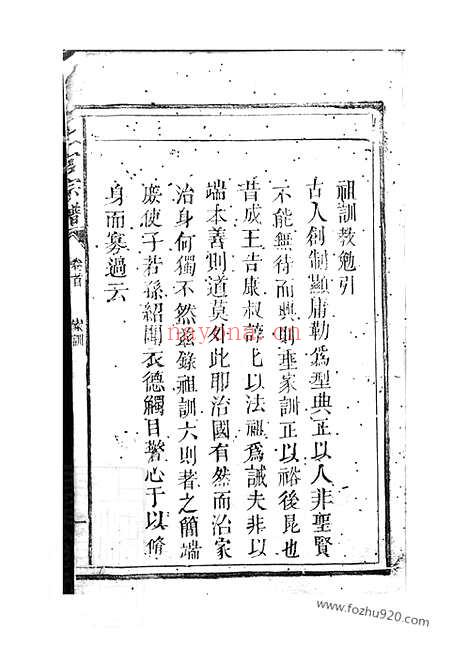 祖訓教勉引
古人創制顯庸勒爲型典正以人非聖賢
不能無待而興則垂家訓正以裕後昆也
昔成王告康叔諄比以法祖爲誡夫非以
端本善則道莫外此耶治國有然而治家
治身何獨不然爰錄祖訓六則著之簡端
庶使子若孫紹聞衣德觸目警心于以脩
身而寡過云
宗譜
卷首
一
nayona.cn
www.fozhu920.com